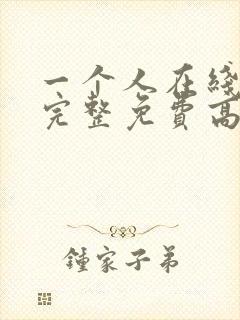 一个人在线
完整免費高
鍾家子弟